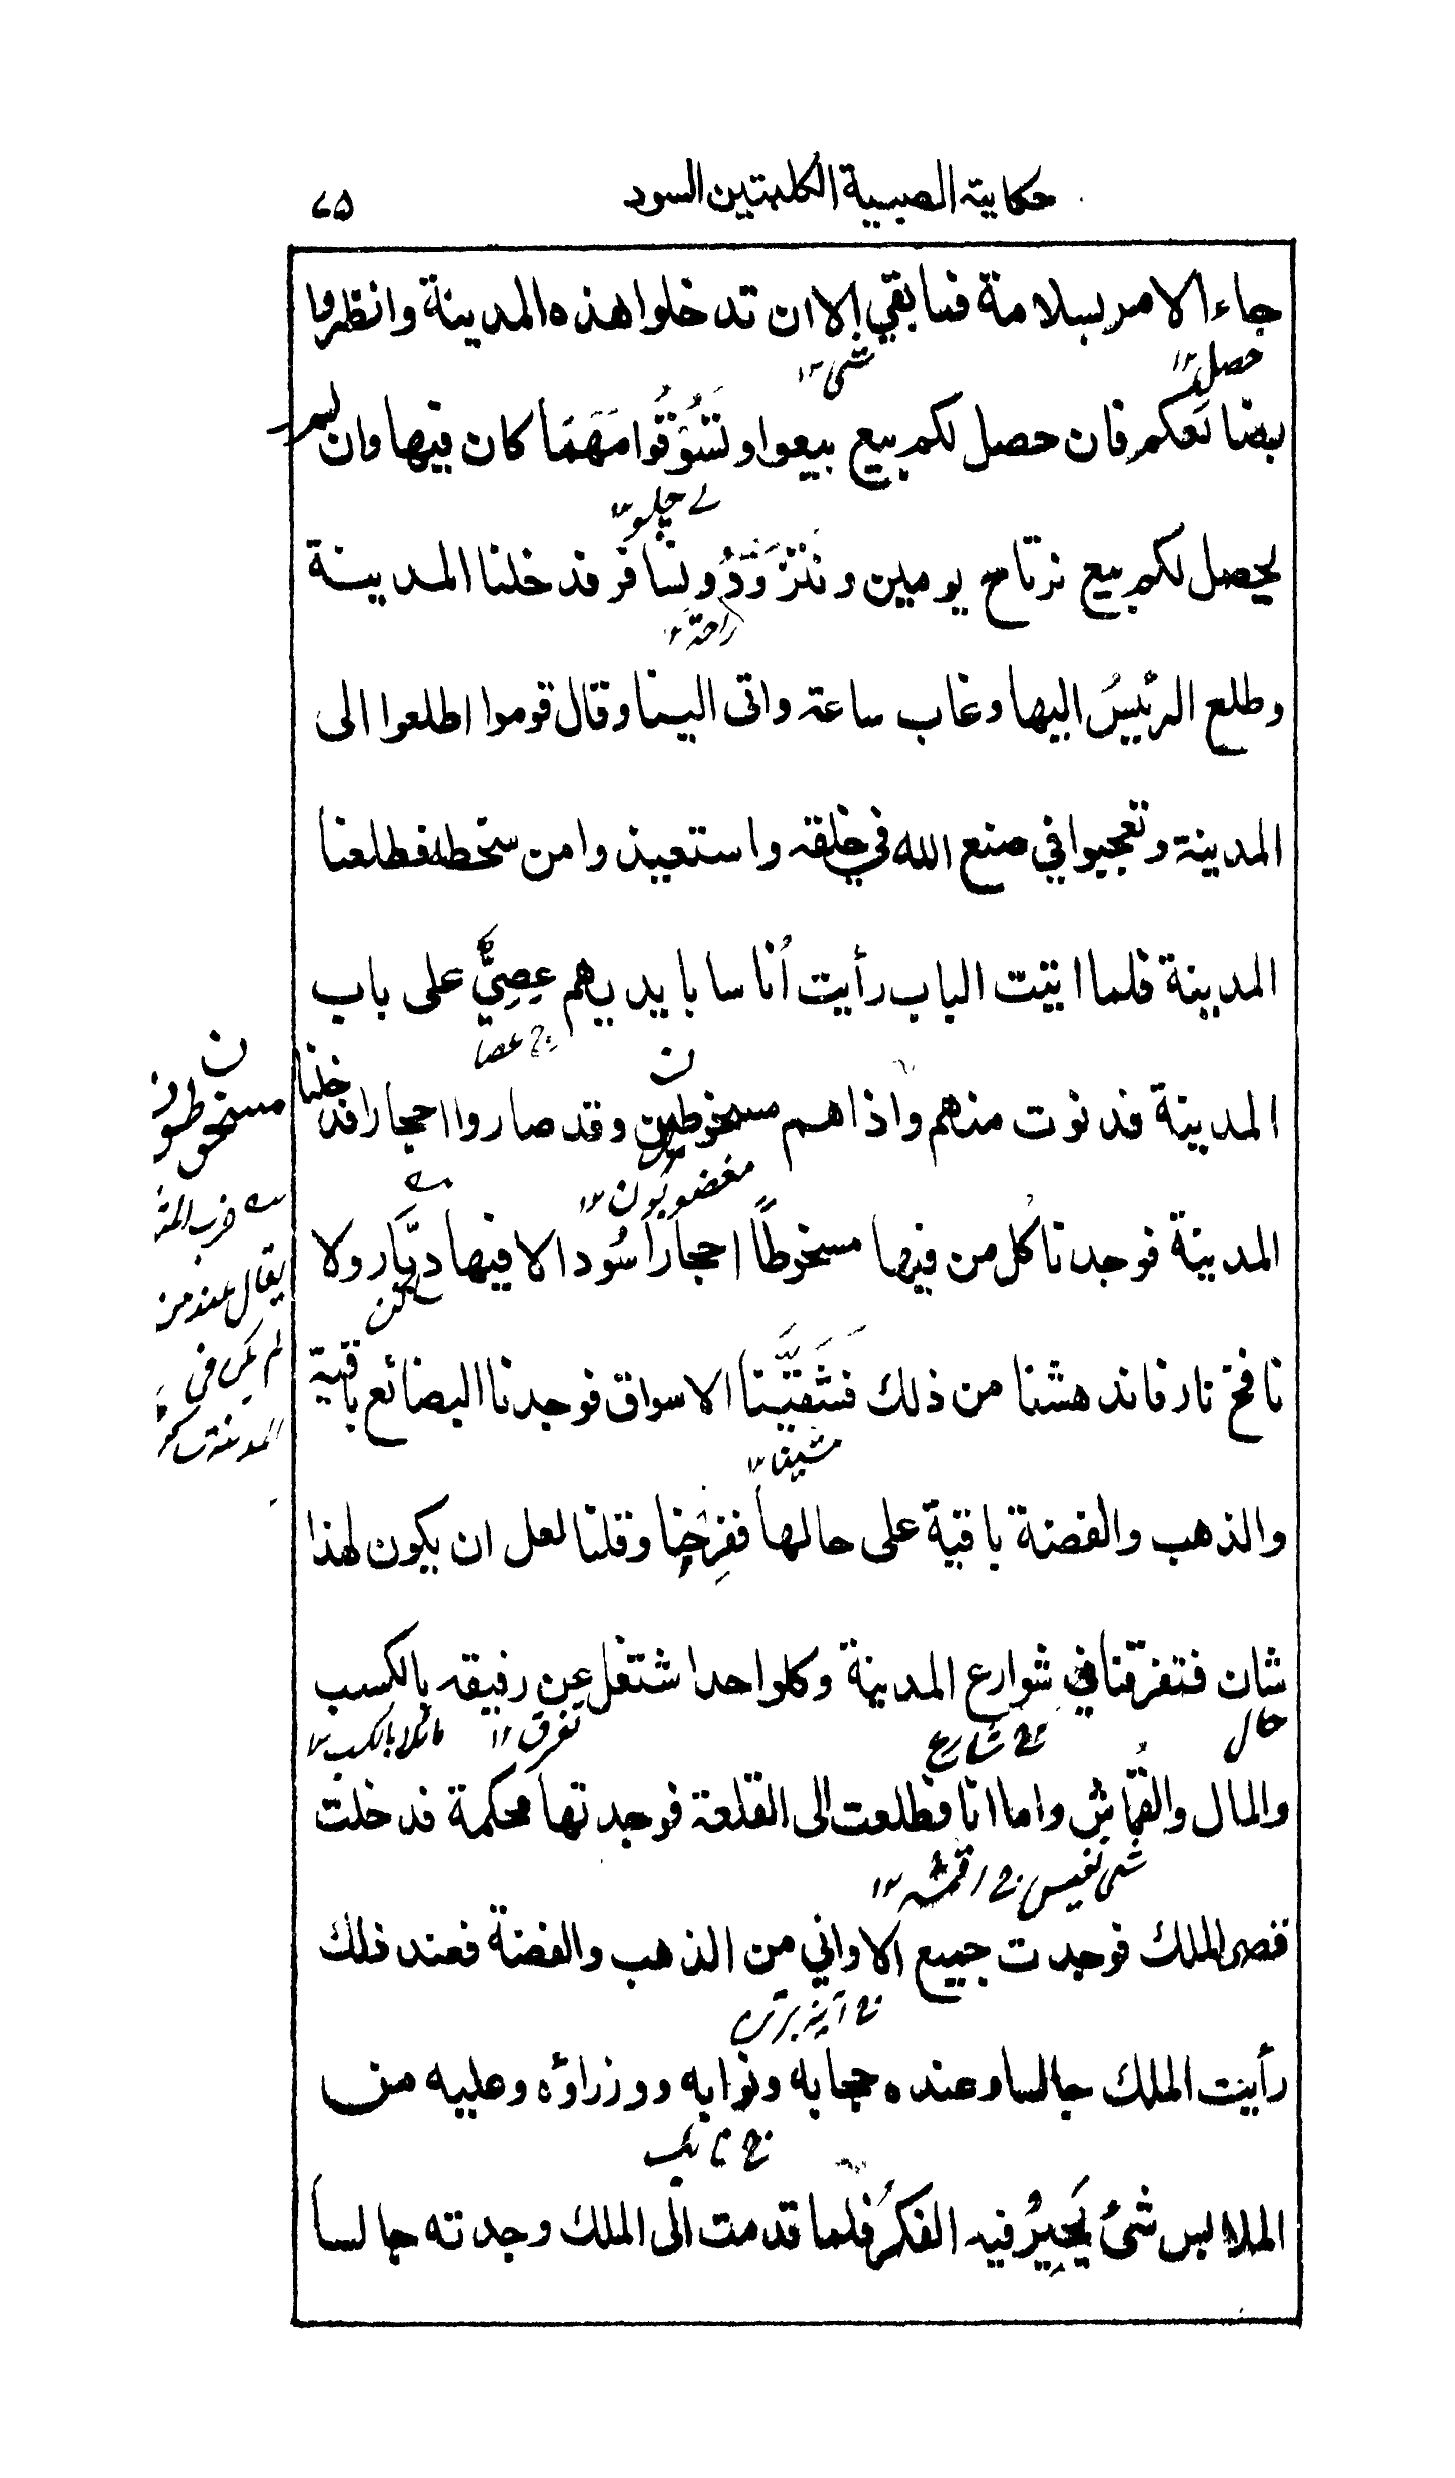 حكاية الصبية الكلبتين السود
٧٥
جاء الامر بسلامة فما بقي الا ان تدخلوا هذه المدينة وانظروا
حصل ١٢
شئ ١٢
بضائعكم فان حصل لكم بيع بيعوا وتَسُوَّقُوا مَهمَا كان فيها وان لم
يحصل لكم بيع نرتاح يومين ونَتَزَوَّدُ ونسافر فدخلنا المدينة
راحة ١٢
وطلع الرئيسُ اليها وغاب ساعة واتى الينا وقال قوموا اطلعوا الى
المدينة وتعجبوا في صنع الله في خلقه واستعيذوا من سخطه فطلعنا
المدينة فلما اتيت الباب رأيت أُناسا بايديهم عِصِيٌّ على باب
ج عصا
المدينة فدنوت منهم واذا هم مسخوطين وقد صاروا احجارا فدخلنا
ن
مغضوبون ١٢
المدينة فوجدنا كُل من فيها مسخوطًا احجارًا سُودا لا فيها ديَّار ولا
نافخ نار فاندهشنا من ذلك فشَقَيَّنا الاسواق فوجدنا البضائع باقية
مشينا ١٢
والذهب والفضة باقية على حالها ففرِحنا وقلنا لعل ان يكون لهذا
شان فتفرقنا في شوارع المدينة وكلواحد اشتغل عن رفيقه بالكسب
حال
ج شارع
تفرق ١٢
مائلا بالكسب ١٢
والمال والقُماش واما انا فطلعت الى القلعة فوجدتها محكمة فدخلت
شئ نفيس ج اقمشه ١٢
قصر الملك فوجدت جميع الاواني من الذهب والفضة فعند ذلك
ج آنية برتن
رأيت الملك جالسا وعنده حجابه ونوابه ووزراؤه وعليه من
ج نائب
الملابس شئ يَحيرُ فيه الفكرُ فلما قدمت الى الملك وجدته جالساً
ن
مسخوطون
يقال عند من
لم يكن في
المدينة